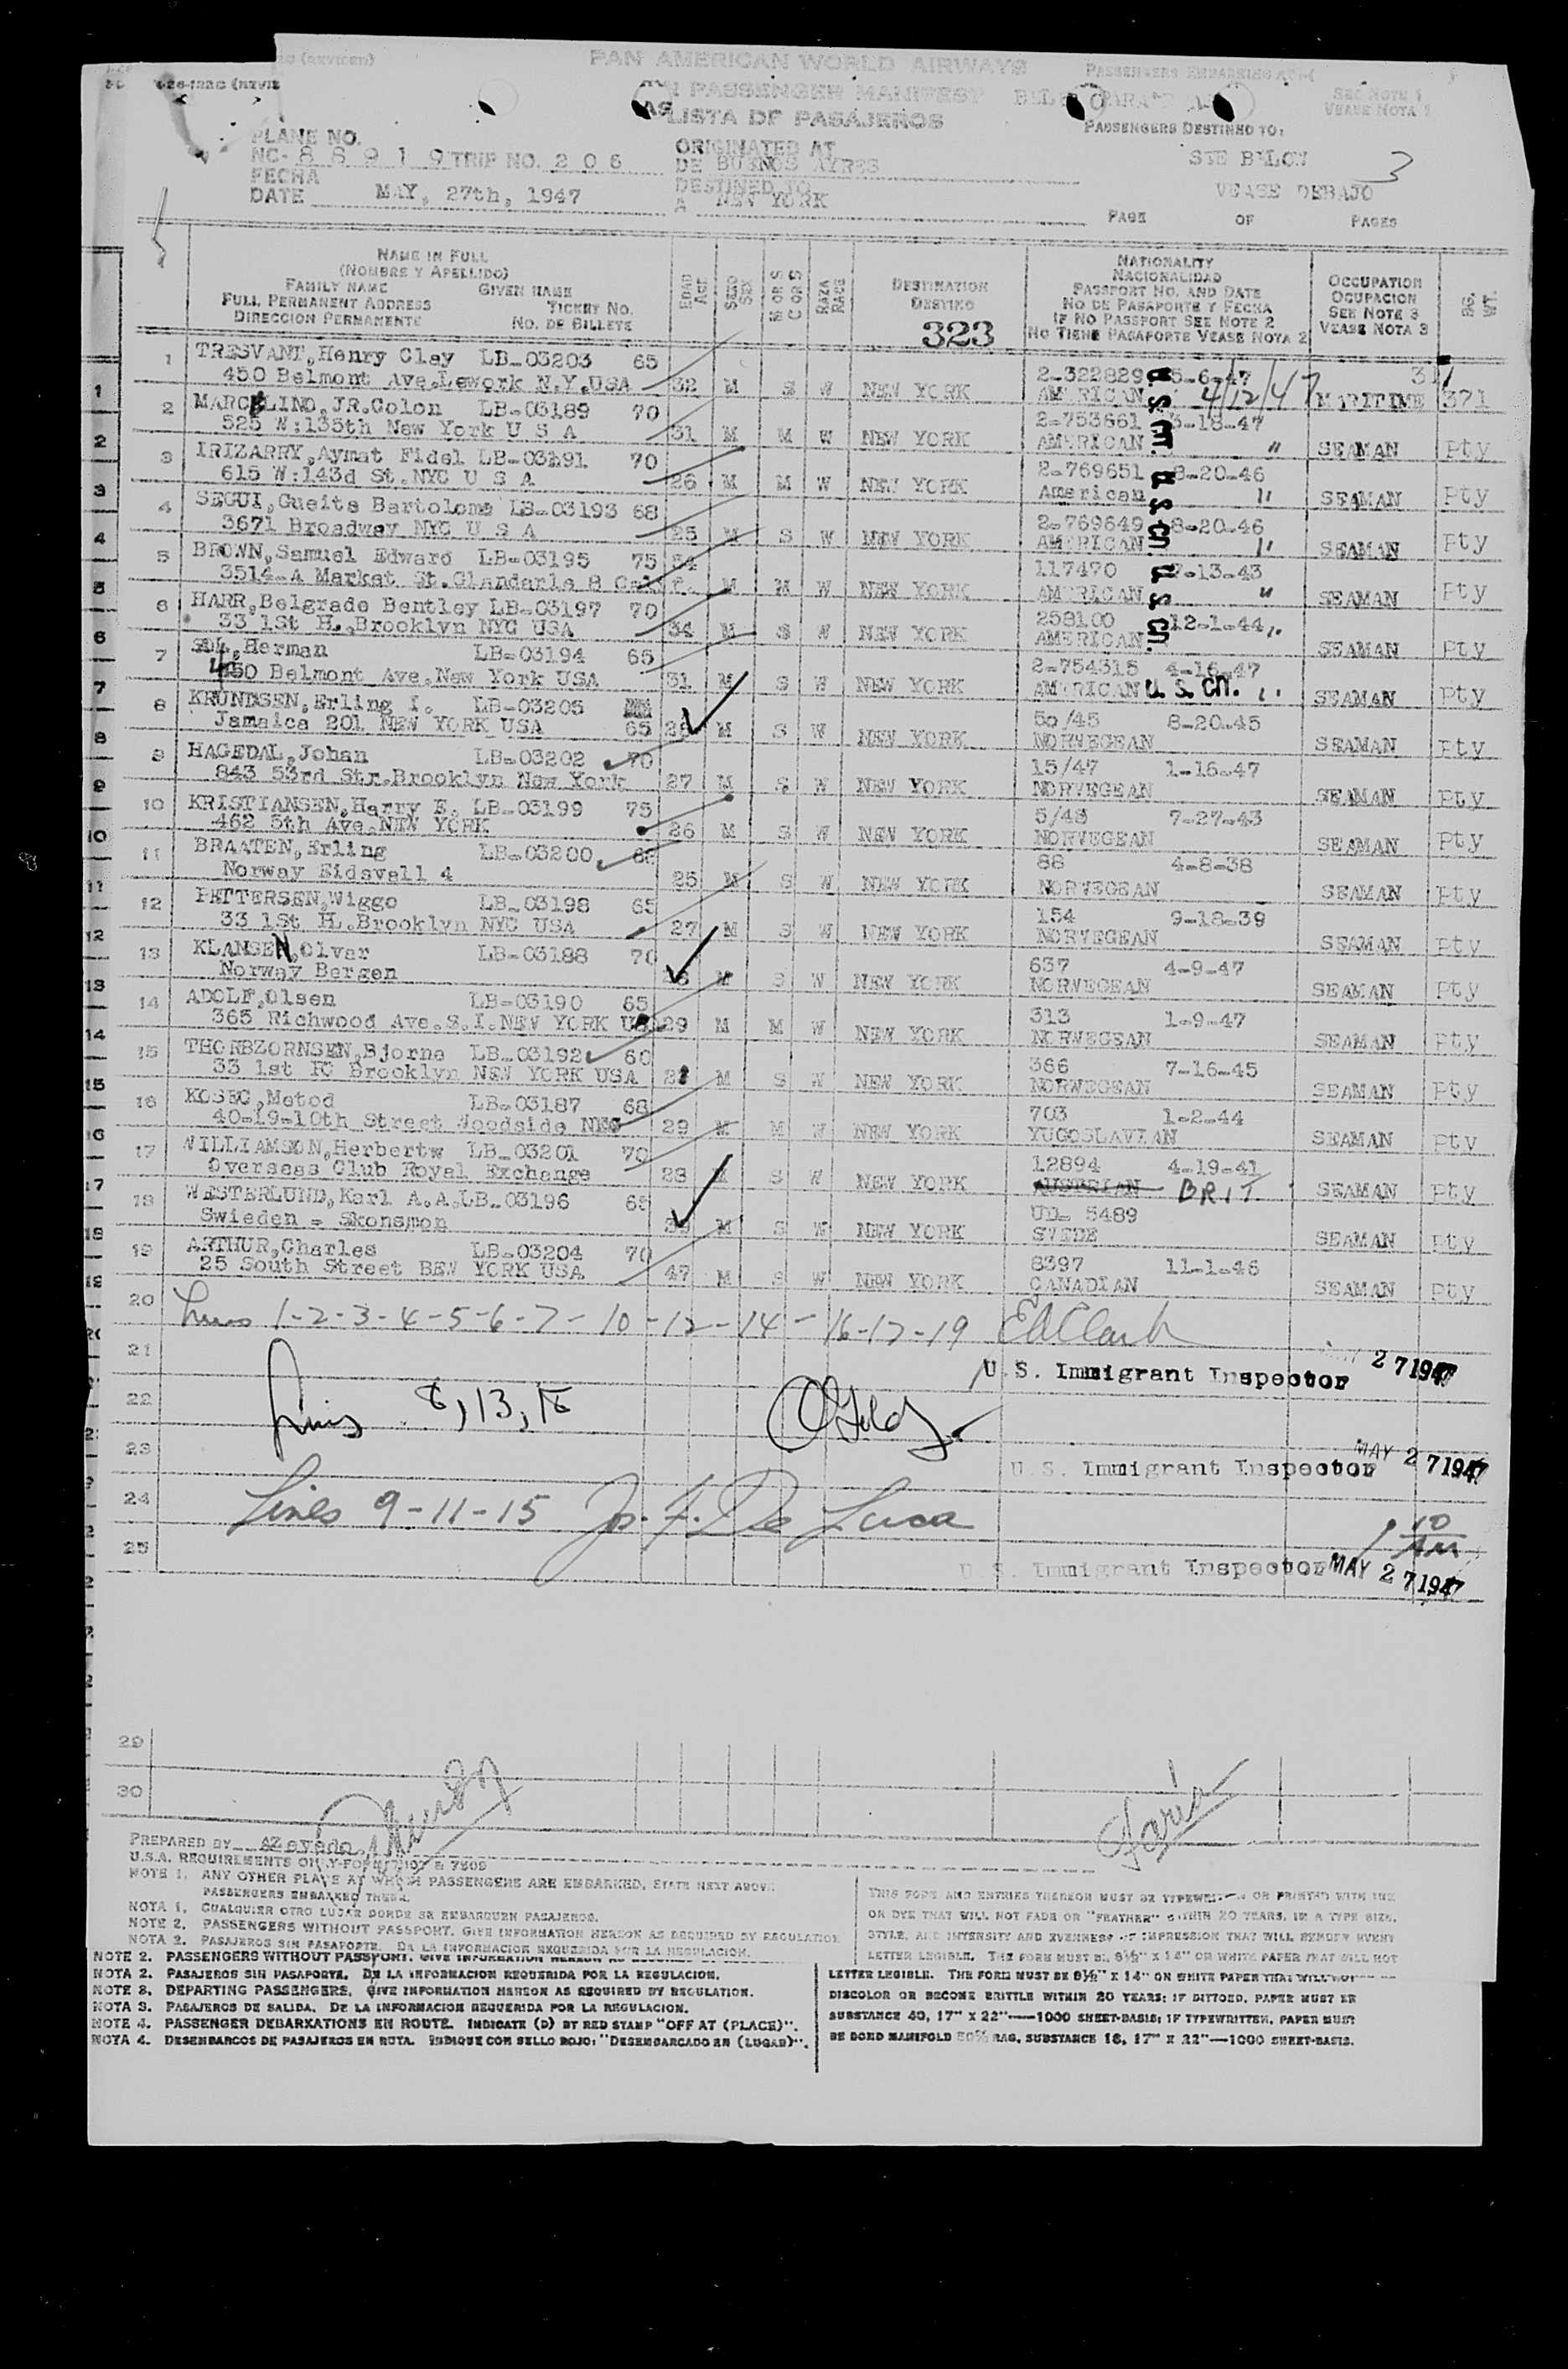 PAN AMERICAN WORLD AIRWAYS
PASSENGER MANIFEST
LISTA DE PASAJEROS
PASSENGERS EMBARKING AT
SEE NOTE 1
VEASE NOTA 1
PLANE NO.
NC- 88919 TRIP NO. 206
FECHA
DATE MAY, 27th, 1947
ORIGINATED AT
DE BUENOS AYRES
DESTINED TO
A NEW YORK
PASSENGERS DESTINED TO:
SEE BELOW 3
VEASE DEBAJO
PAGE OF PAGES
NAME IN FULL
(NOMBRE Y APELLIDO)
FAMILY NAME GIVEN NAME
FULL PERMANENT ADDRESS TICKET NO.
DIRECCION PERMANENTE NO. DE BILLETE
EDAD AGE
SEXO SEX
M OR S C OR S
RAZA RACE
DESTINATION
DESTINO
323
NATIONALITY
NACIONALIDAD
PASSPORT NO. AND DATE
NO DE PASAPORTE Y FECHA
IF NO PASSPORT SEE NOTE 2
NO TIENE PASAPORTE VEASE NOTA 2
OCCUPATION
OCUPACION
SEE NOTE 3
VEASE NOTA 3
BG. WT.
1 TRESVANT,Henry Clay LB-03203 65 2-322829 5-6-47
450 Belmont Ave.Lework N.Y.USA 32 M S W NEW YORK AMERICAN 4/12/47 MARITIME 371
2 MARCELINO,JR.Colon LB-03189 70 2-753661 3-18-47
525 W:135th New York U S A 31 M M W NEW YORK AMERICAN " SEAMAN pty
3 IRIZARRY,Aymat Fidel LB-03191 70 2-769651 8-20-46
615 W:143d St.NYC U S A 26 M M W NEW YORK American " SEAMAN pty
4 SEGUI,Gueits Bartolome LB-03193 68 2-769649 8-20-46
3671 Broadway NYC U S A 25 M S W NEW YORK AMERICAN " SEAMAN pty
5 BROWN,Samuel Edward LB-03195 75 54 117470 7-13-43
3514-A Market St.Glandarle 8 Calif. M M W NEW YORK AMERICAN " SEAMAN pty
6 HARR,Belgrade Bentley LB-03197 70 258100 12-1-44
33 1St H.,Brooklyn NYC USA 34 M S W NEW YORK AMERICAN " SEAMAN pty
7 Herman LB-03194 65 2-754315 4-16-47
450 Belmont Ave.New York USA 31 M S W NEW YORK AMERICAN U.S.Cn. " SEAMAN pty
8 KRUNDSEN,Erling I. LB-03205 50/45 8-20-45
Jamaica 201 NEW YORK USA 65 26 M S W NEW YORK NORWEGEAN SEAMAN pty
9 HAGEDAL,Johan LB-03202 70 15/47 1-16-47
843 53rd Str.Brooklyn New York 27 M S W NEW YORK NORWEGEAN SEAMAN pty
10 KRISTIANSEN,Harry E. LB-03199 75 5/43 7-27-43
462 5th Ave.NEW YORK 26 M S W NEW YORK NORWEGEAN SEAMAN pty
11 BRAATEN,Erling LB-03200 88 4-8-38
Norway Eidsvell 4 25 M S W NEW YORK NORWEGEAN SEAMAN pty
12 PETTERSEN,Wiggo LB-03198 65 154 9-18-39
33 1St H.Brooklyn NYC USA 27 M S W NEW YORK NORWEGEAN SEAMAN pty
13 KLANSEN,Olvar LB-03188 70 637 4-9-47
Norway Bergen M S W NEW YORK NORWEGEAN SEAMAN pty
14 ADOLF,Olsen LB-03190 65 313 1-9-47
365 Richwood Ave.S.I.NEW YORK USA 29 M M W NEW YORK NORWEGEAN SEAMAN pty
15 THORBZORNSEN,Bjorne LB-03192 60 366 7-16-45
33 1st Brooklyn NEW YORK USA M S W NEW YORK NORWEGEAN SEAMAN pty
16 KOSEC,Metod LB-03187 68 703 1-2-44
40-19-10th Street Woodside 29 M M W NEW YORK YUGOSLAVIAN SEAMAN pty
17 WILLIAMSON,Herbertw LB-03201 70 12894 4-19-41
Overseas Club Royal Exchange 28 M S W NEW YORK AUSTRIAN BRIT SEAMAN pty
18 WESTERLUND,Karl A.A.LB-03196 65 UD- 5489
Swieden = Skonsmon M S W NEW YORK SVEDE SEAMAN pty
19 ARTHUR,Charles LB-03204 70 8397 11-1-46
25 South Street BEW YORK USA 47 M S W NEW YORK CANADIAN SEAMAN pty
20 Lines 1-2-3-4-5-6-7-10-12-14-16-17-19 EAClark
21 U.S. Immigrant Inspector MAY 27 1947
22 Lines 8,13,18
23 U.S. Immigrant Inspector MAY 27 1947
24 Lines 9-11-15 Jo. F. De Luca
25 U.S. Immigrant Inspector MAY 27 1947
29
30
PREPARED BY Azevedo
NOTE 1. ANY OTHER PLACE AT WHICH PASSENGERS ARE EMBARKED, STATE NEXT ABOVE
PASSENGERS EMBARKED THERE.
NOTA 1. CUALQUIER OTRO LUGAR DONDE SE EMBARQUEN PASAJEROS.
NOTE 2. PASSENGERS WITHOUT PASSPORT. GIVE INFORMATION HEREON AS REQUIRED BY REGULATION
NOTA 2. PASAJEROS SIN PASAPORTE. DE LA INFORMACION REQUERIDA POR LA REGULACION.
NOTE 2. PASSENGERS WITHOUT PASSPORT. GIVE INFORMATION HEREON AS
NOTA 2. PASAJEROS SIN PASAPORTE. DE LA INFORMACION REQUERIDA POR LA REGULACION.
NOTE 3. DEPARTING PASSENGERS. GIVE INFORMATION HEREON AS REQUIRED BY REGULATION.
NOTA 3. PASAJEROS DE SALIDA. DE LA INFORMACION REQUERIDA POR LA REGULACION.
NOTE 4. PASSENGER DEBARKATIONS EN ROUTE. INDICATE (D) BY RED STAMP "OFF AT (PLACE)".
NOTA 4. DESEMBARCOS DE PASAJEROS EN RUTA. INDIQUE CON SELLO ROJO: "DESEMBARCADO EN (LUGAR)".
THIS FORM AND ENTRIES THEREON MUST BE TYPEWRITTEN OR PRINTED WITH INK
OR DYE THAT WILL NOT FADE OR "FEATHER" WITHIN 20 YEARS, IN A TYPE SIZE,
STYLE, AND INTENSITY AND EVENNESS OF IMPRESSION THAT WILL RENDER EVERY
LETTER LEGIBLE. THE FORM MUST BE 8½" X 14" ON WHITE PAPER THAT WILL NOT
LETTER LEGIBLE. THE FORM MUST BE 8½" X 14" ON WHITE PAPER THAT WILL NOT
DISCOLOR OR BECOME BRITTLE WITHIN 20 YEARS; IF DITTOED, PAPER MUST BE
SUBSTANCE 40, 17" X 22"—1000 SHEET-BASIS; IF TYPEWRITTEN, PAPER MUST
BE BOND MANIFOLD 50% RAG, SUBSTANCE 16, 17" X 22"—1000 SHEET-BASIS.